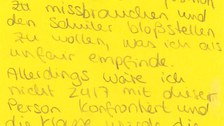 zu missbrauchen und
den Schüler bloßstellen
zu wollen, was ich als
unfair empfinde.
Allerdings wäre ich
nicht 24/7 mit dieser
Person konfrontiert und
die Klasse würde die